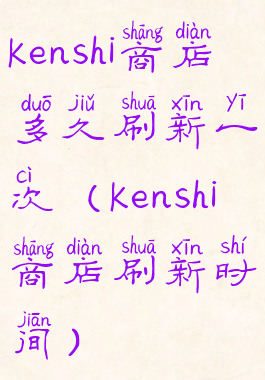 shāng diàn
Kenshi商店
duō jiǔ shuā xīn yī
多久刷新一
cì
次（Kenshi
shāng diàn shuā xīn shí
商店刷新时
jiān
间）